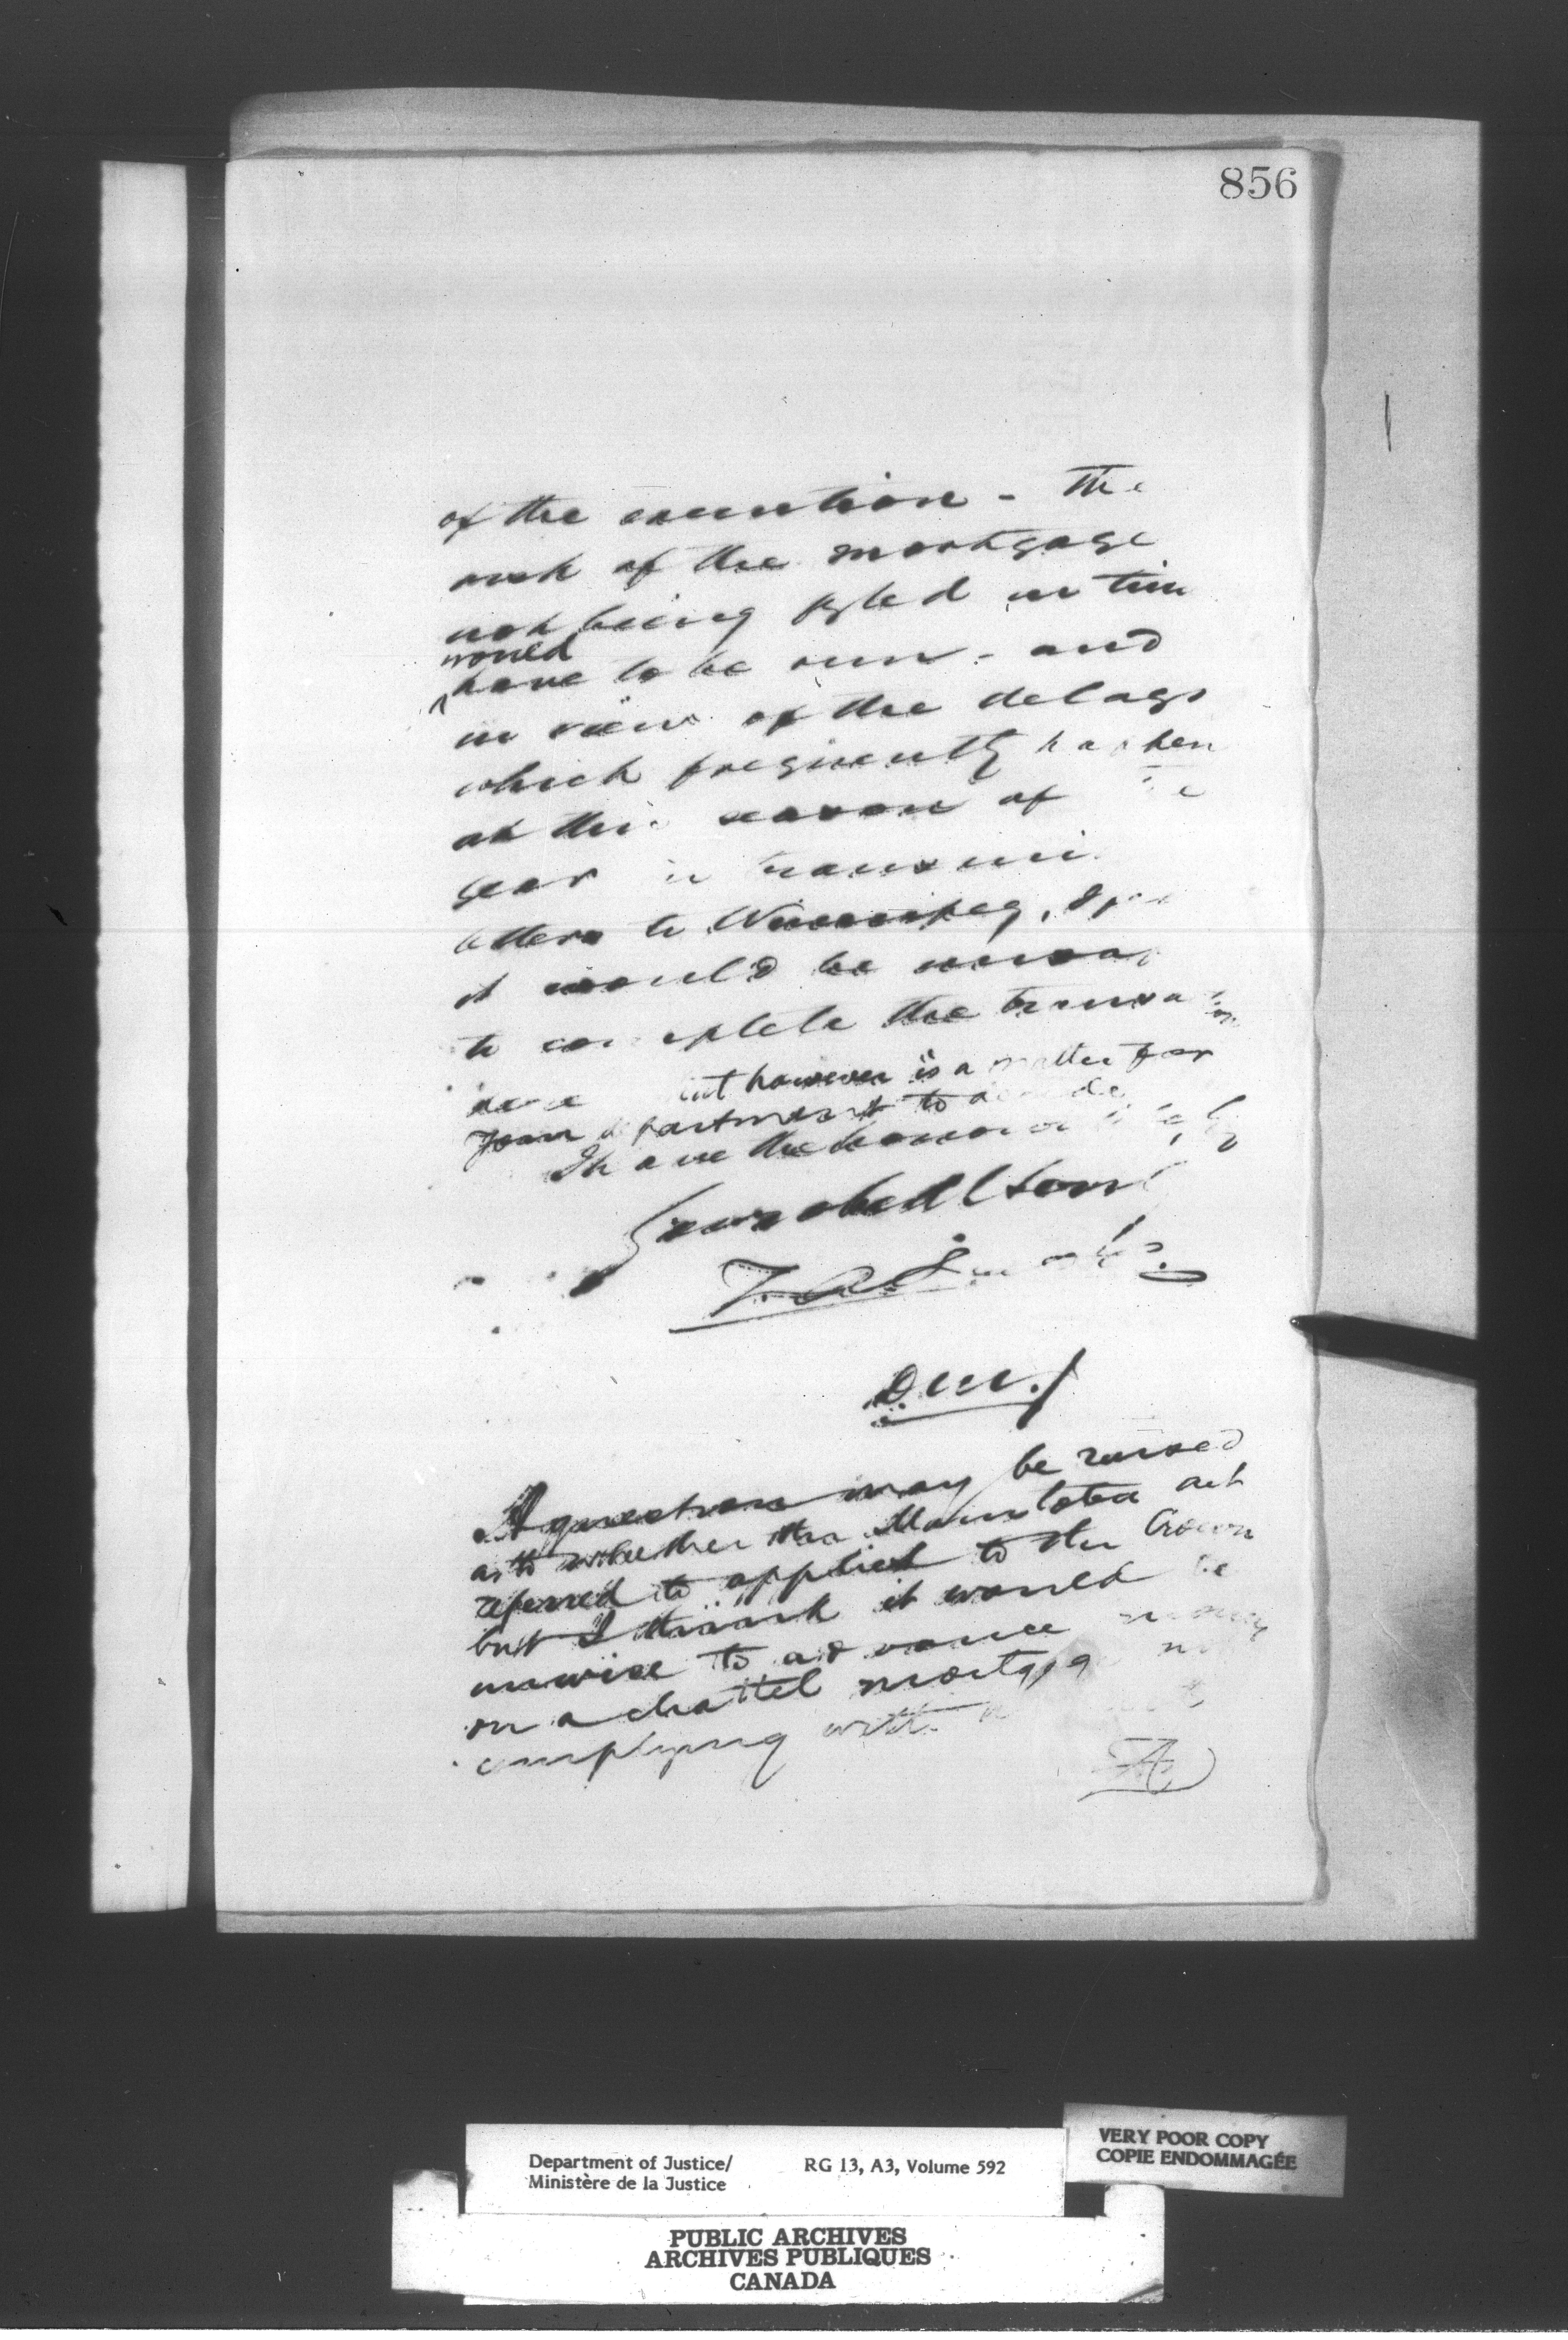 856
of the execution - The
risk of the mortgage
not being filed in time
would
have to be run - and
in view of the delays
which frequently happen
at this season of
year in
letters to Winnipeg, I
it would be
to complete the
but however is a matter for
your department to decide
I have the honour
Your obed
D.M.J
A question may be raised
as to whether the Manitoba act
referred to applied to the Crown
but I think it would be
unwise to advance money
on a chattel mortgage
complying with
Department of Justice/
Ministère de la Justice
RG 13, A3, Volume 592
VERY POOR COPY
COPIE ENDOMMAGÉE
PUBLIC ARCHIVES
ARCHIVES PUBLIQUES
CANADA